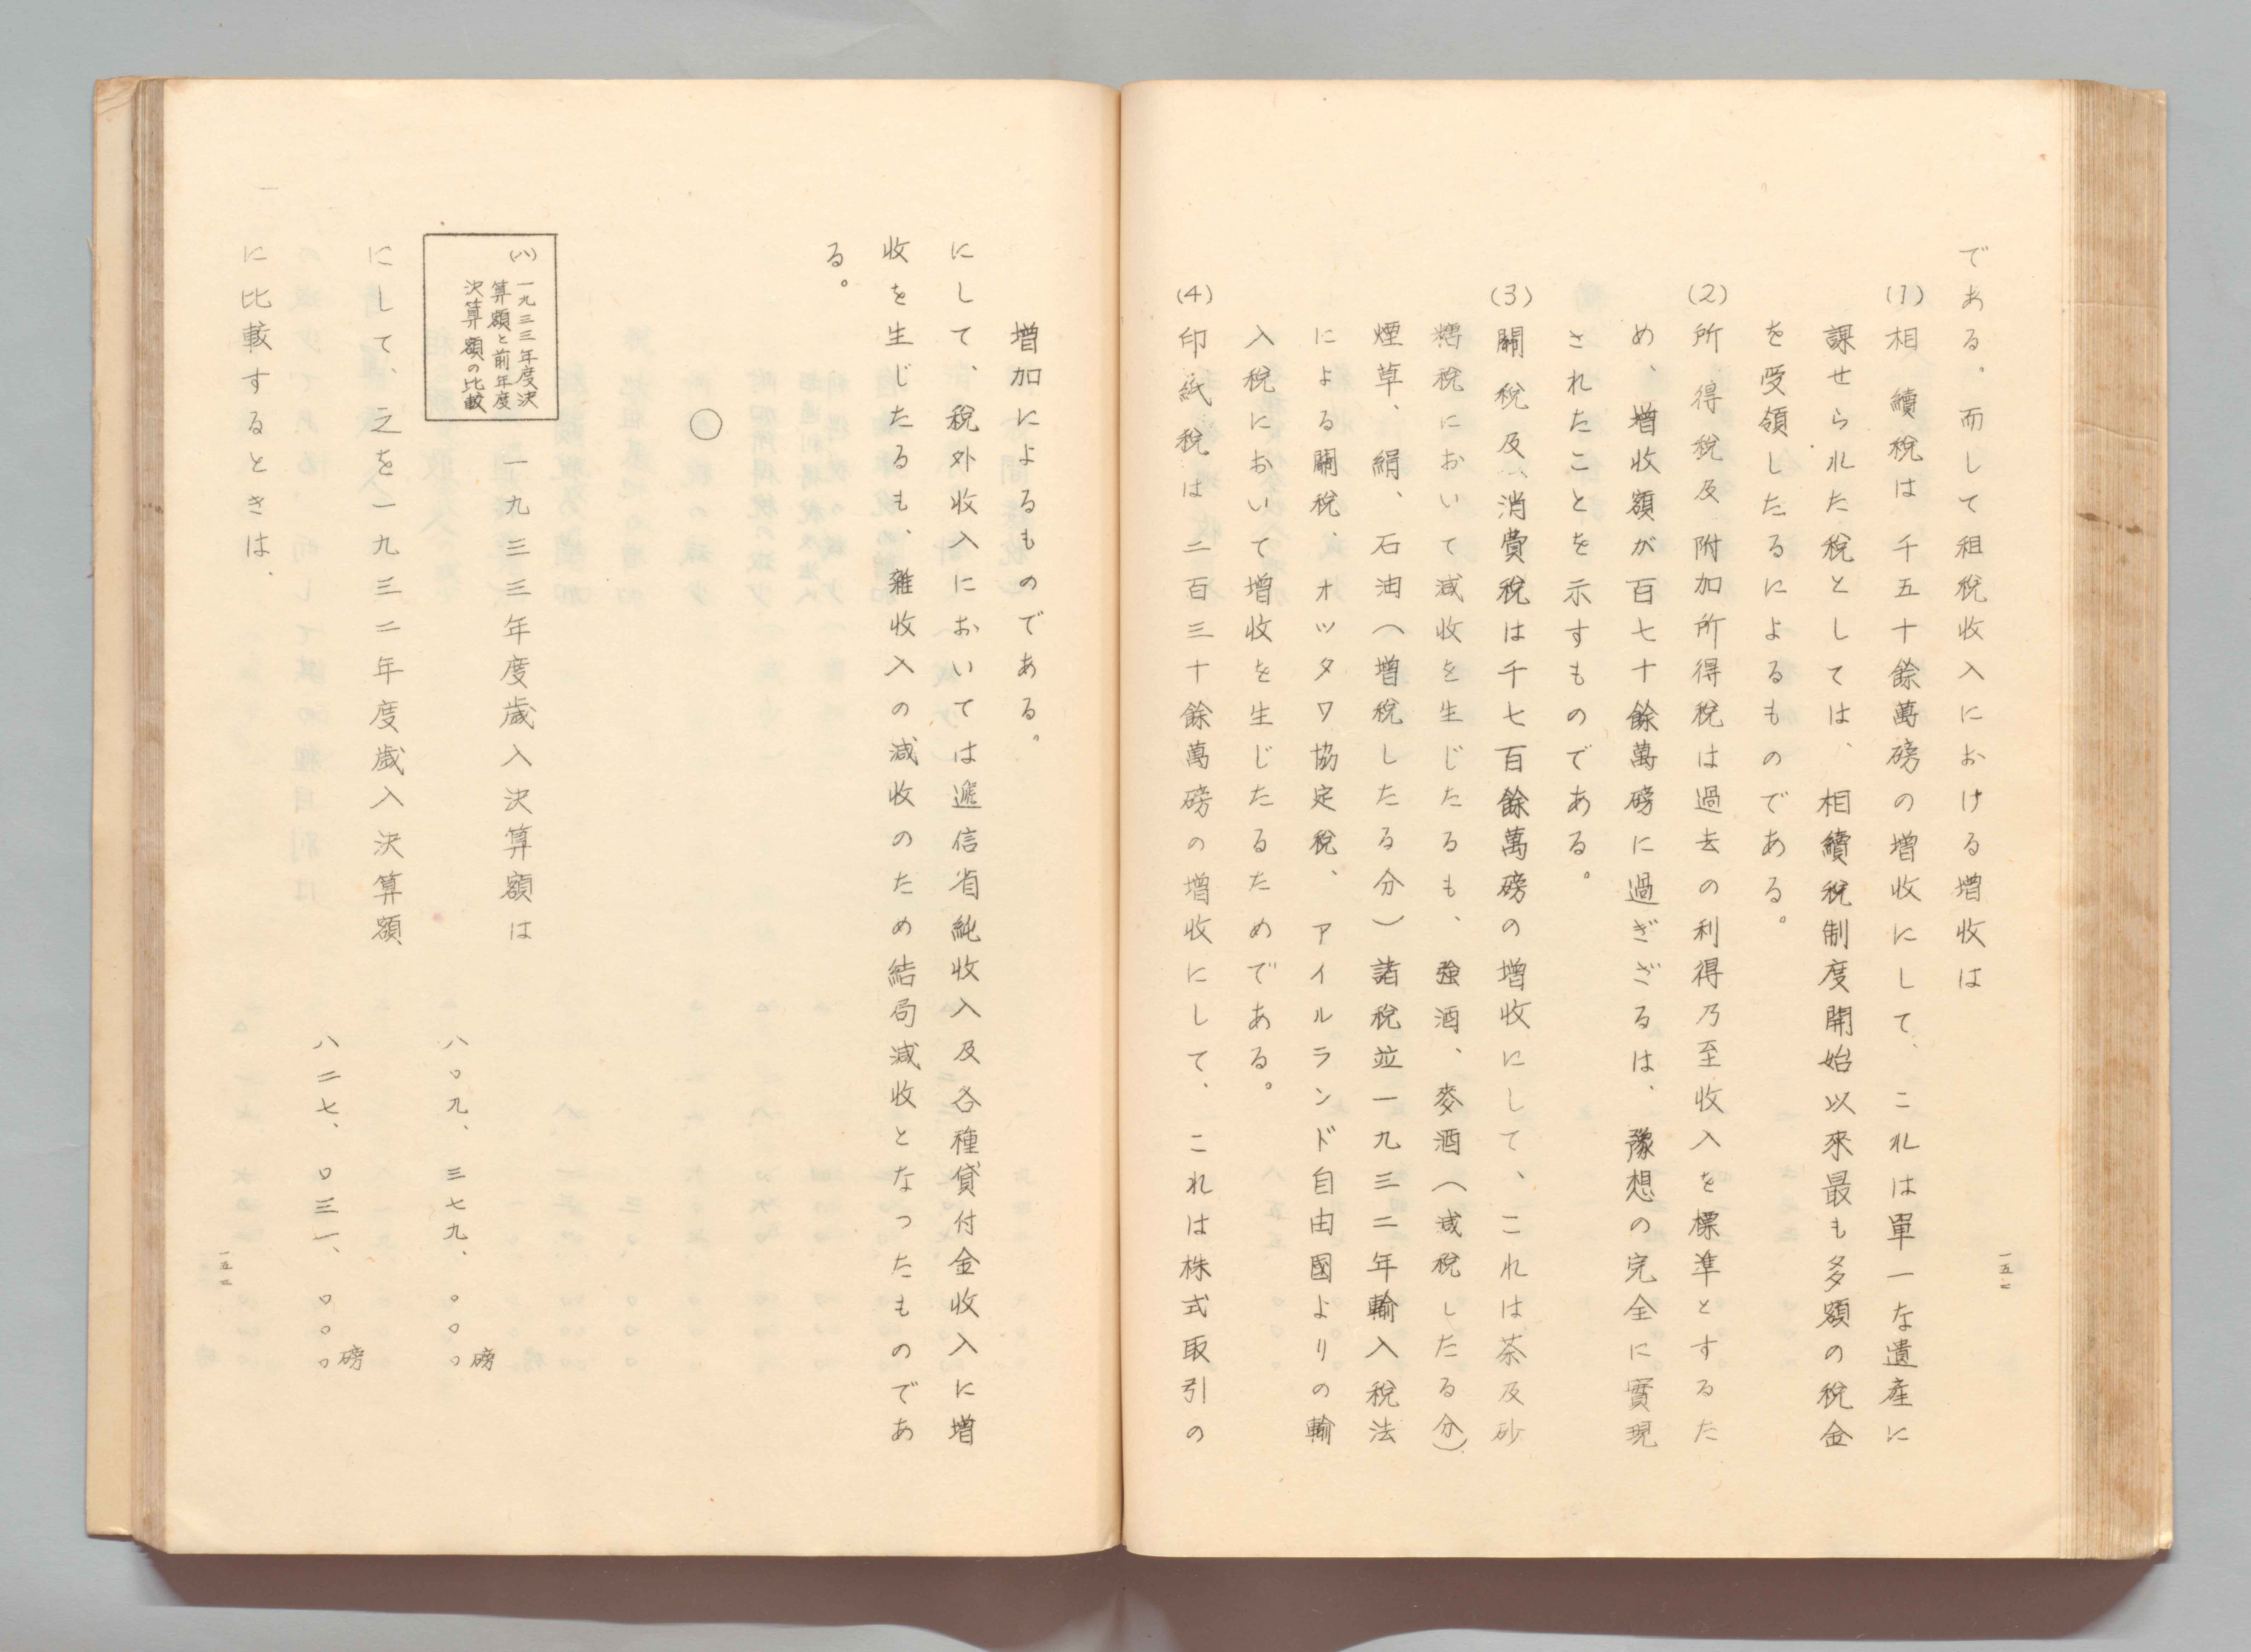 である。而して租税收入における增收は
(1) 相續税は千五十餘萬磅の增收にして、これは單一な遺產に
課せられた税としては、相續税制度開始以來最も多額の税金
を受領したるによるものである。
(2) 所得税及附加所得税は過去の利得乃至收入を標準とするた
め、增收額が百七十餘萬磅に過ぎざるは、豫想の完全に實現
されたことを示すものである。
(3) 關税及消費税は千七百餘萬磅の增收にして、これは茶及砂
糖税において減收を生じたるも、強酒、麥酒(減税したる分)
煙草、絹、石油(增税したる分)諸税並一九三二年輸入税法
による關税、オッタワ協定税、アイルランド自由國よりの輸
入税において增收を生じたるためである。
(4) 印紙税は二百三十餘萬磅の增收にして、これは株式取引の
一五二
增加によるものである。
にして、税外收入においては遞信省純收入及各種貸付金收入に增
收を生じたるも、雜收入の減收のため結局減收となつたものであ
る。
○
(ハ) 一九三三年度決
算額と前年度
決算額の比較
一九三三年度歲入決算額は
八〇九、三七九、〇〇〇磅
にして、之を一九三二年度歲入決算額
八二七、〇三一、〇〇〇磅
に比較するときは、
一五三